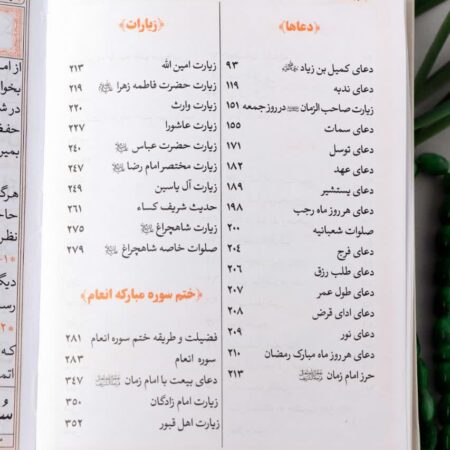 ﴿دعاها﴾
دعای کمیل بن زیاد ۹۳
دعای ندبه ۱۱۹
زیارت صاحب الزمان در روز جمعه ۱۵۱
دعای سمات ۱۵۵
دعای توسل ۱۷۱
دعای عهد ۱۸۲
دعای یستشیر ۱۸۹
دعای هر روز ماه رجب ۱۹۸
صلوات شعبانیه ۲۰۰
دعای فرج ۲۰۴
دعای طلب رزق ۲۰۶
دعای طول عمر ۲۰۷
دعای ادای قرض ۲۰۸
دعای نور ۲۰۹
دعای هر روز ماه مبارک رمضان ۲۱۰
حرز امام زمان ۲۱۳
﴿زیارات﴾
زیارت امین الله ۲۱۳
زیارت حضرت فاطمه زهرا ۲۱۹
زیارت وارث ۲۲۰
زیارت عاشورا ۲۲۷
زیارت حضرت عباس ۲۴۰
زیارت مختصر امام رضا ۲۴۷
زیارت آل یاسین ۲۴۹
حدیث شریف کساء ۲۶۱
زیارت شاهچراغ ۲۷۵
صلوات خاصه شاهچراغ ۲۷۹
﴿ختم سوره مبارکه انعام﴾
فضیلت و طریقه ختم سوره انعام ۲۸۱
سوره انعام ۲۸۳
دعای بیعت با امام زمان ۳۴۷
زیارت امام زادگان ۳۵۰
زیارت اهل قبور ۳۵۲
از امـ
بخوا
در شـ
حفظ
بمیر
هرگـ
حاجـ
نظر
دیگـ
رسـ
کـه
اتمـ